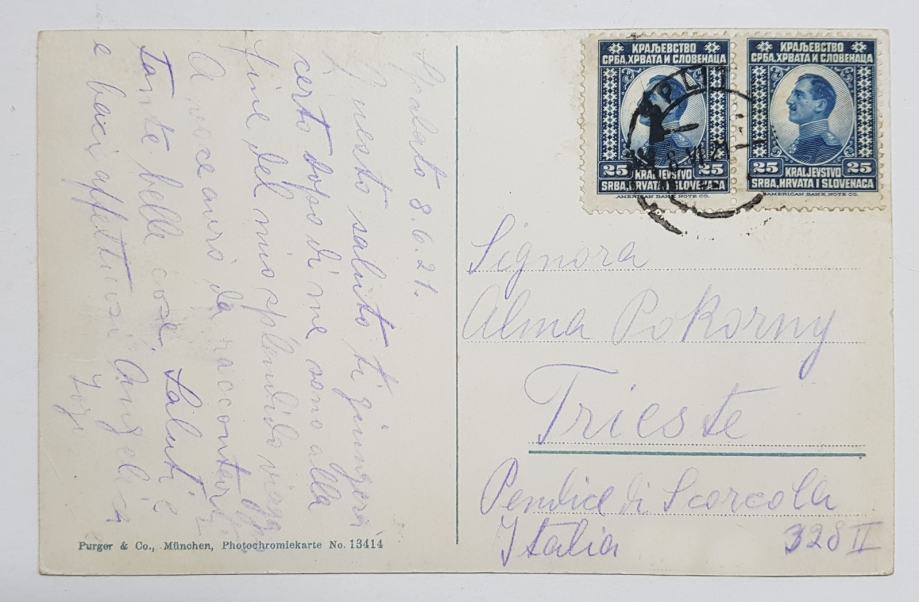 Spalato 8.6.21.
Questo saluto ti giungerà
certo dopo di me sono alla
fine del mio splendido viaggio
A voce avrò da raccontarti
tante belle cose. Saluti e
e baci affettuosi Angelica
КРАЉЕВСТВО
СРБА, ХРВАТА И СЛОВЕНАЦА
25 25
KRALJEVSTVO
SRBA, HRVATA I SLOVENACA
AMERICAN BANK NOTE CO.
КРАЉЕВСТВО
СРБА, ХРВАТА И СЛОВЕНАЦА
25 25
KRALJEVSTVO
SRBA, HRVATA I SLOVENACA
AMERICAN BANK NOTE CO.
Signora
Alma Pokorny
Trieste
Pendice di Scorcola
Italia
328 II
Purger & Co., München, Photochromiekarte No. 13414